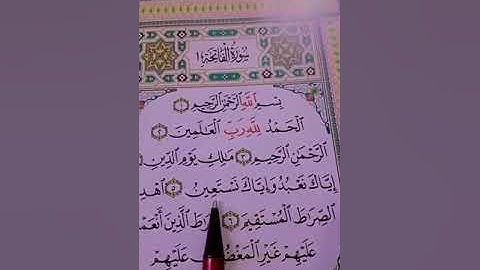 سُورَةُ الْفَاتِحَةِ ١
بِسْمِ اللَّهِ الرَّحْمَٰنِ الرَّحِيمِ ١
الْحَمْدُ لِلَّهِ رَبِّ الْعَالَمِينَ ٢
الرَّحْمَٰنِ الرَّحِيمِ ٣ مَٰلِكِ يَوْمِ الدِّينِ
إِيَّاكَ نَعْبُدُ وَإِيَّاكَ نَسْتَعِينُ ٥ اهْدِ
الصِّرَاطَ الْمُسْتَقِيمَ ٦ رَاطَ الَّذِينَ أَنْعَمْ
عَلَيْهِمْ غَيْرِ الْمَغْضُ عَلَيْهِمْ